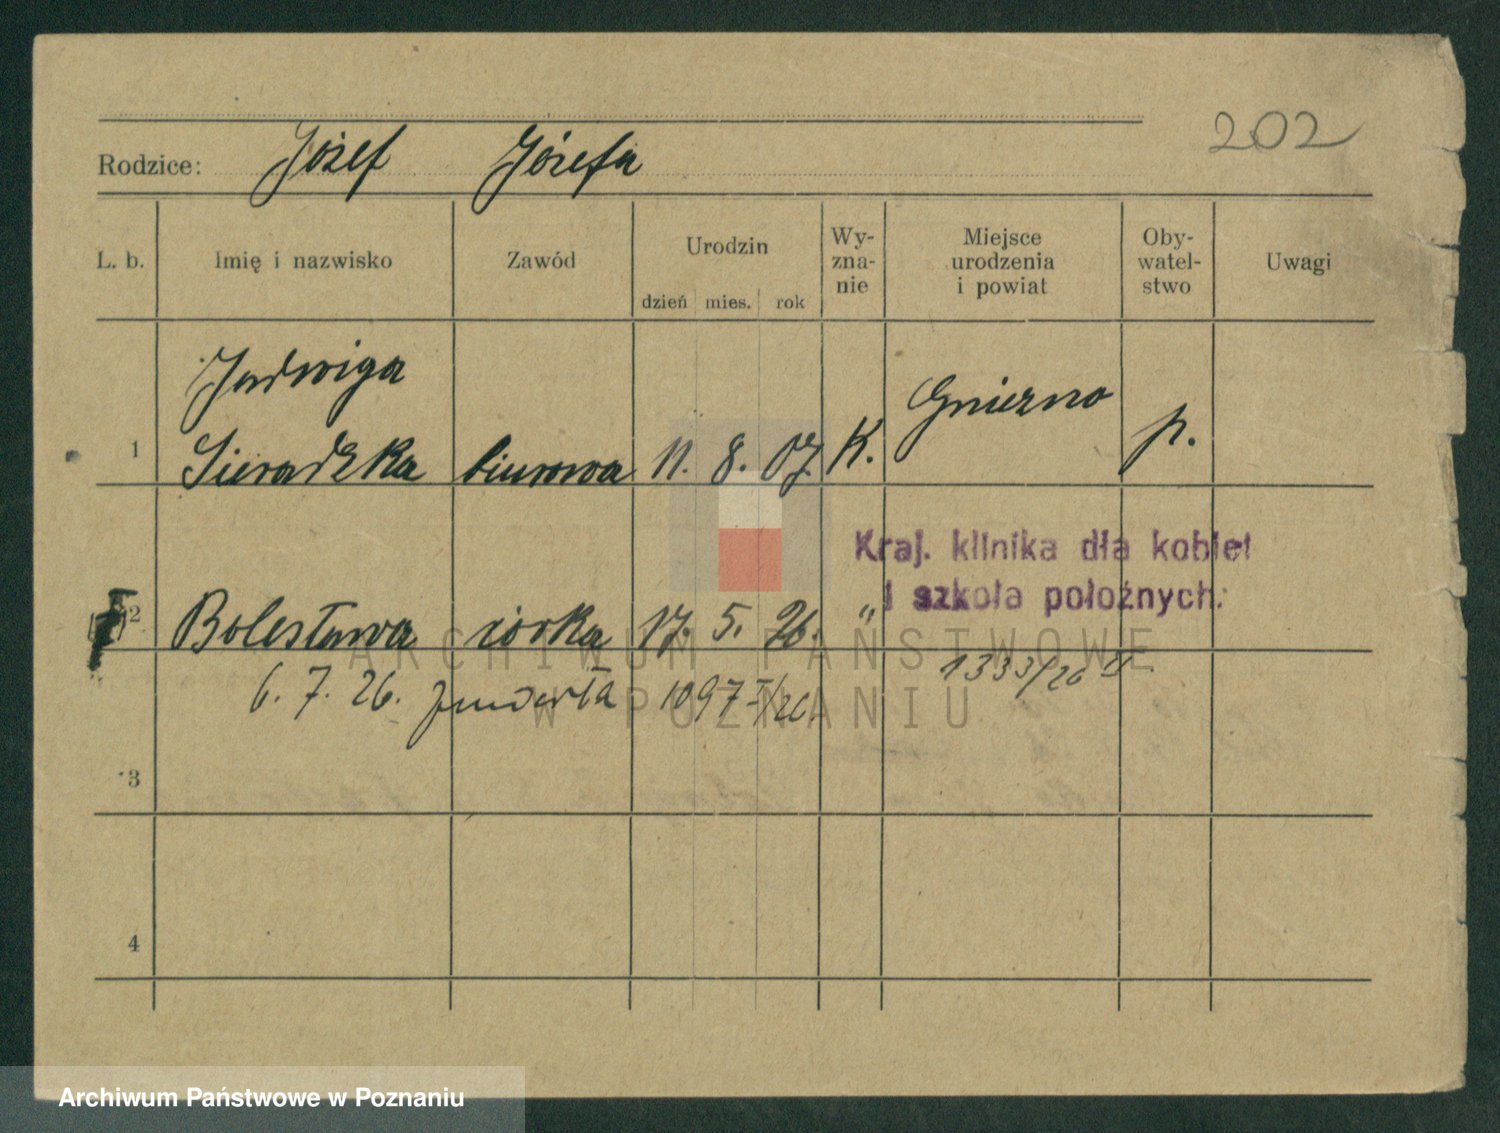 202
Rodzice: Józef Józefa
L. b. Imię i nazwisko Zawód Urodzin dzień mies. rok Wy-zna-nie Miejsce urodzenia i powiat Oby-watel-stwo Uwagi
Jadwiga Gniezno
1 Sieradzka biurowa 11. 8. 07. K. p.
Kraj. klinika dla kobiet
i szkoła położnych.
2 Bolesława córka 17. 5. 26. "
6. 7. 26. zmarła 1097 I/26. 1333/26 II
3
4
ARCHIWUM PAŃSTWOWE
W POZNANIU
Archiwum Państwowe w Poznaniu